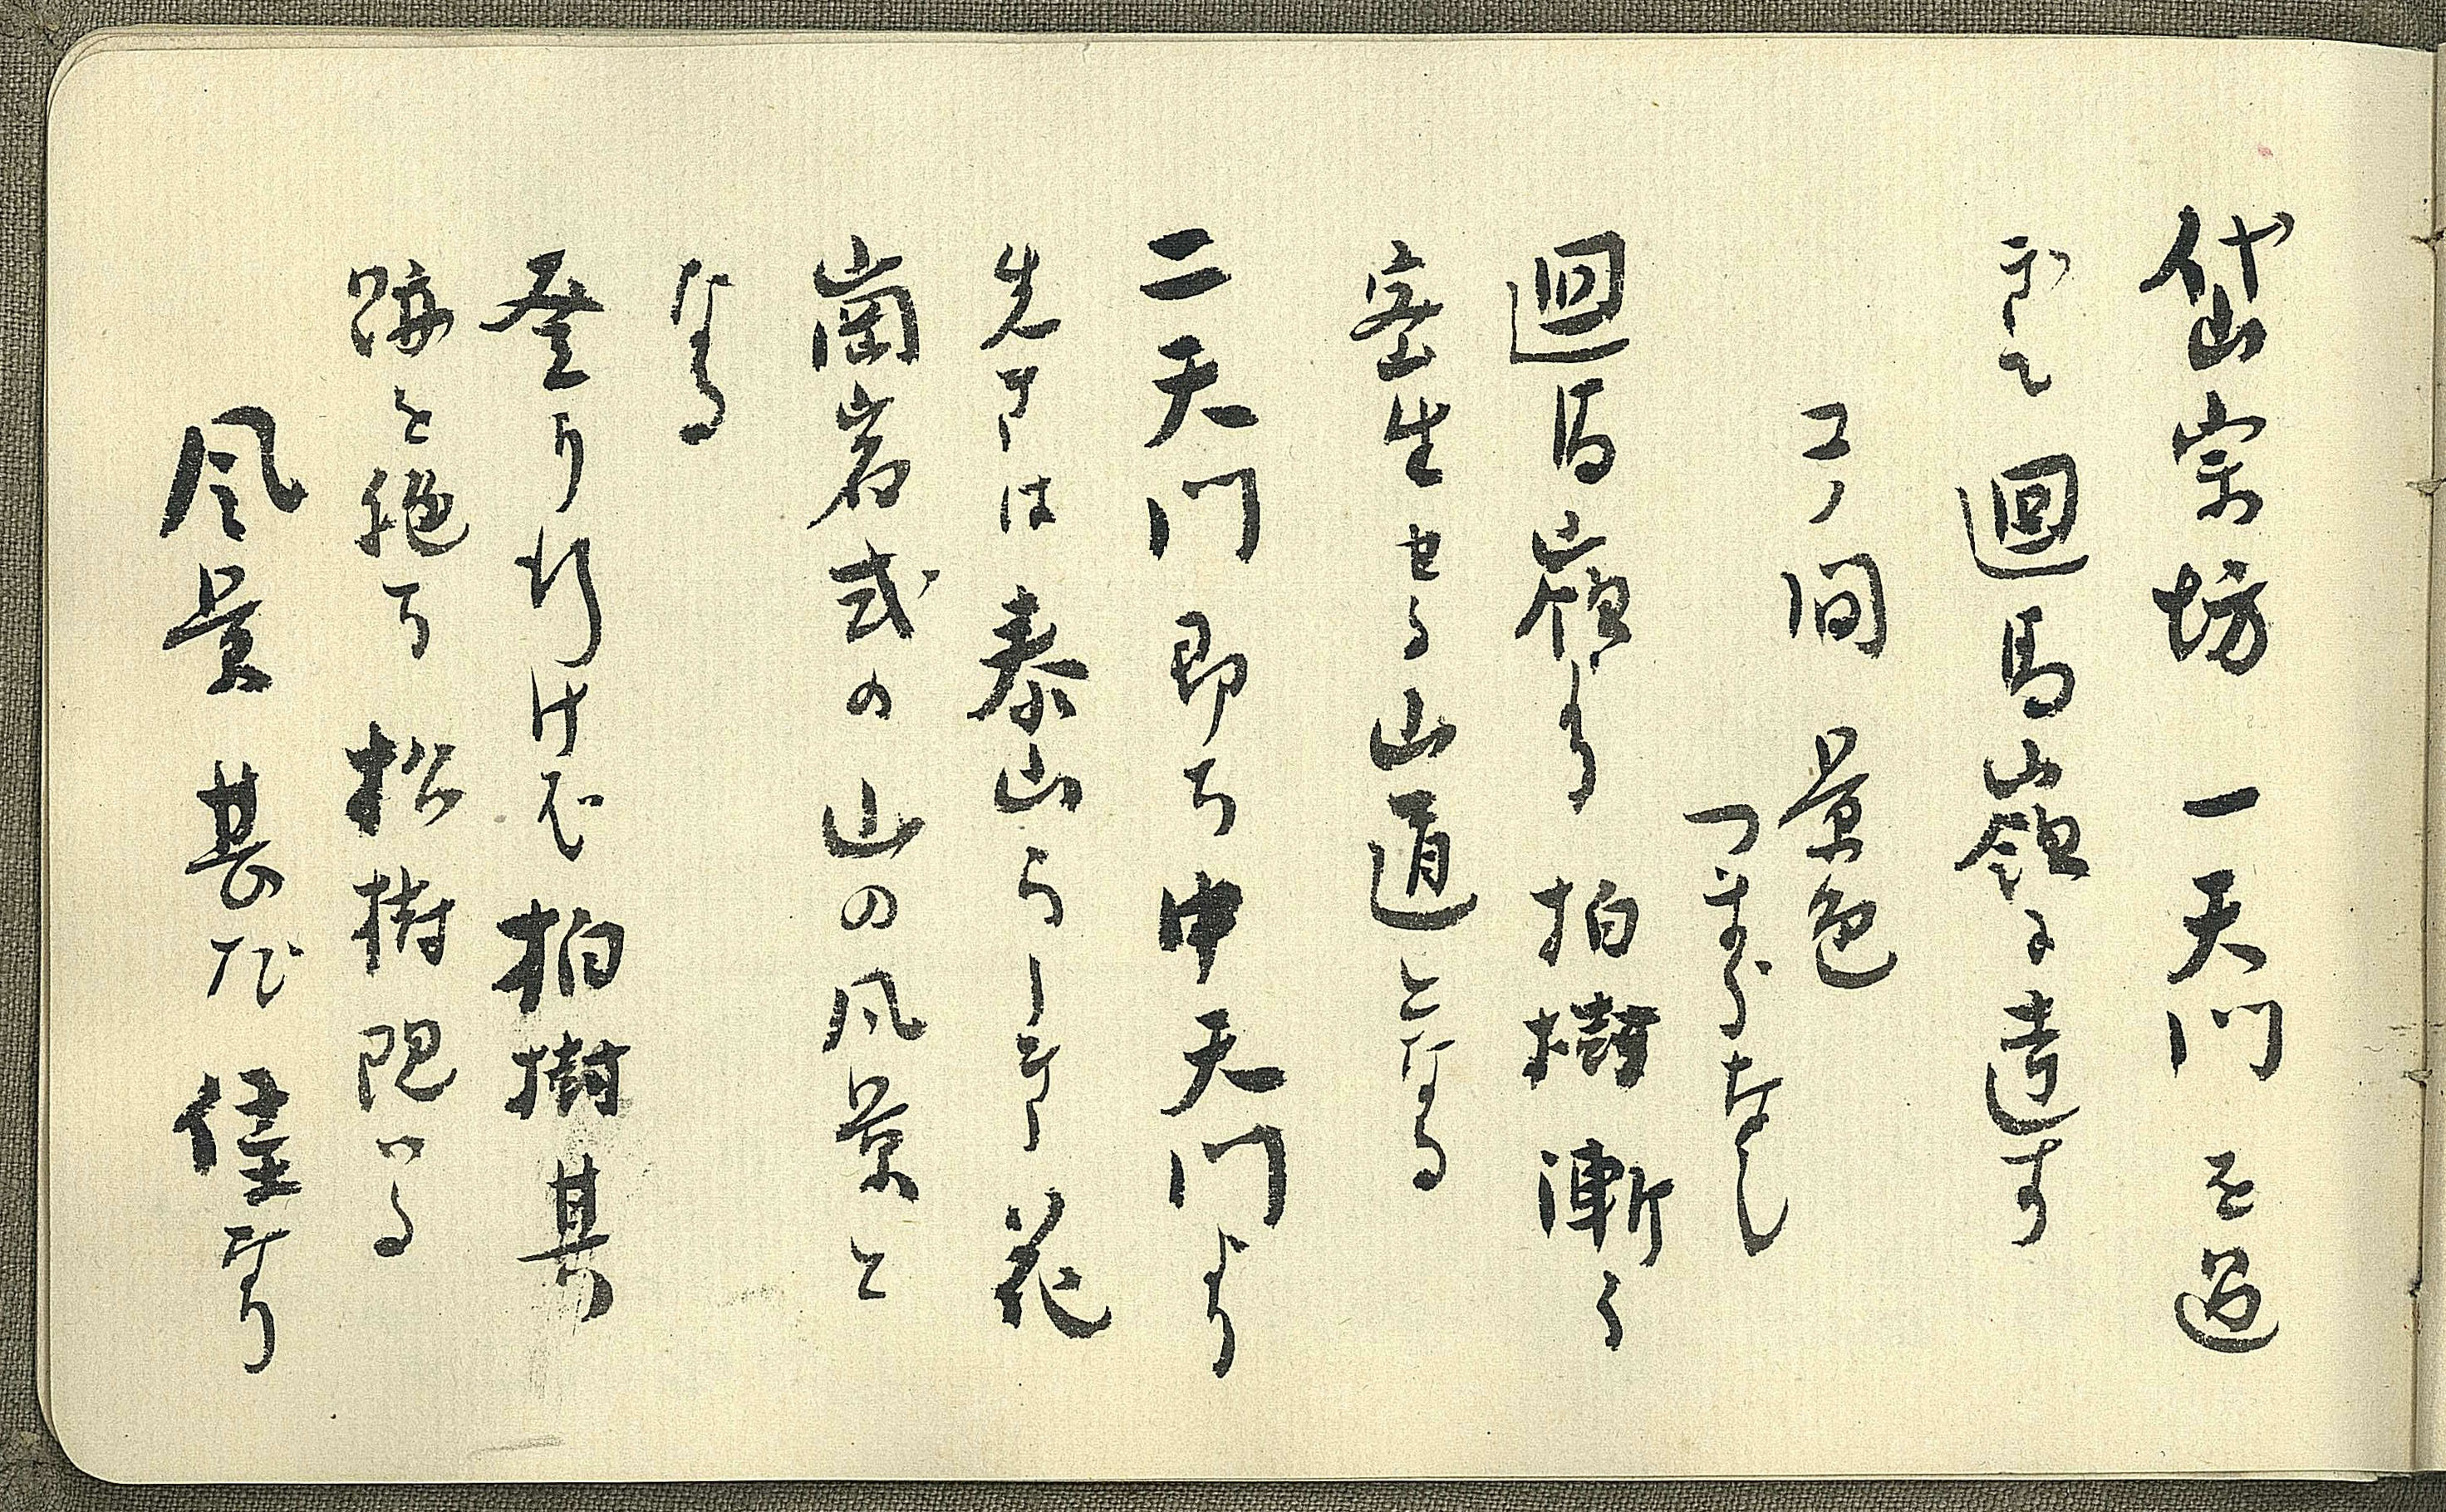 岱宗坊 一天門を過
ぎて 迴馬嶺に達す
コノ間 景色
つまらなし
迴馬嶺より 柏樹 漸く
密生せる山道となる
二天門 即ち中天門より
先きは泰山らしき 花
崗岩式の山の風景と
なる
登り行けば 柏樹 其
跡を絶ち 松樹 現はる
風景 甚だ 佳なり